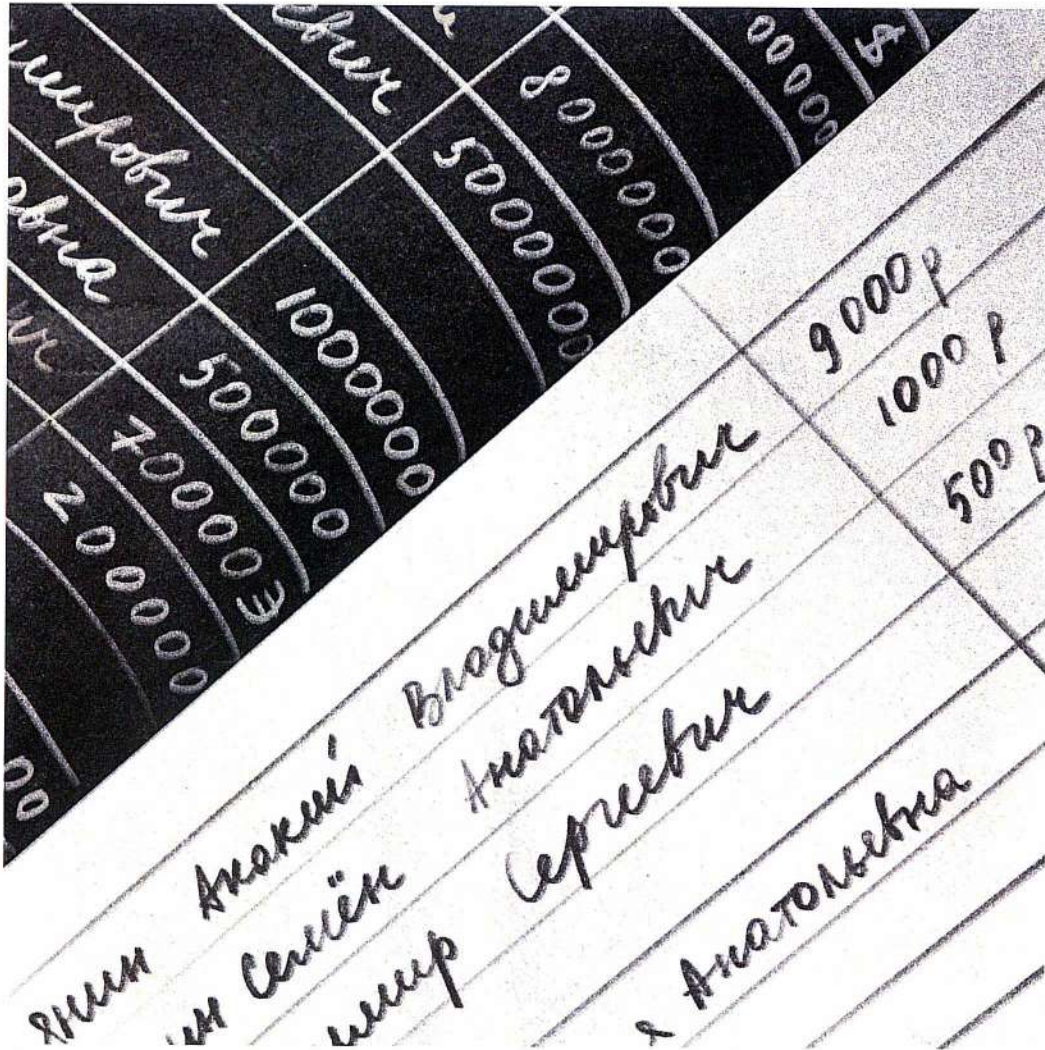 евич
мирович
овна
ич
8000000
5000000
1000000
500000
70000 €
200000
00
00000 $
янин Акакий Владимирович 9000 р
ин Семён Анатольевич 1000 р
имир Сергеевич 500 р
я Анатольевна